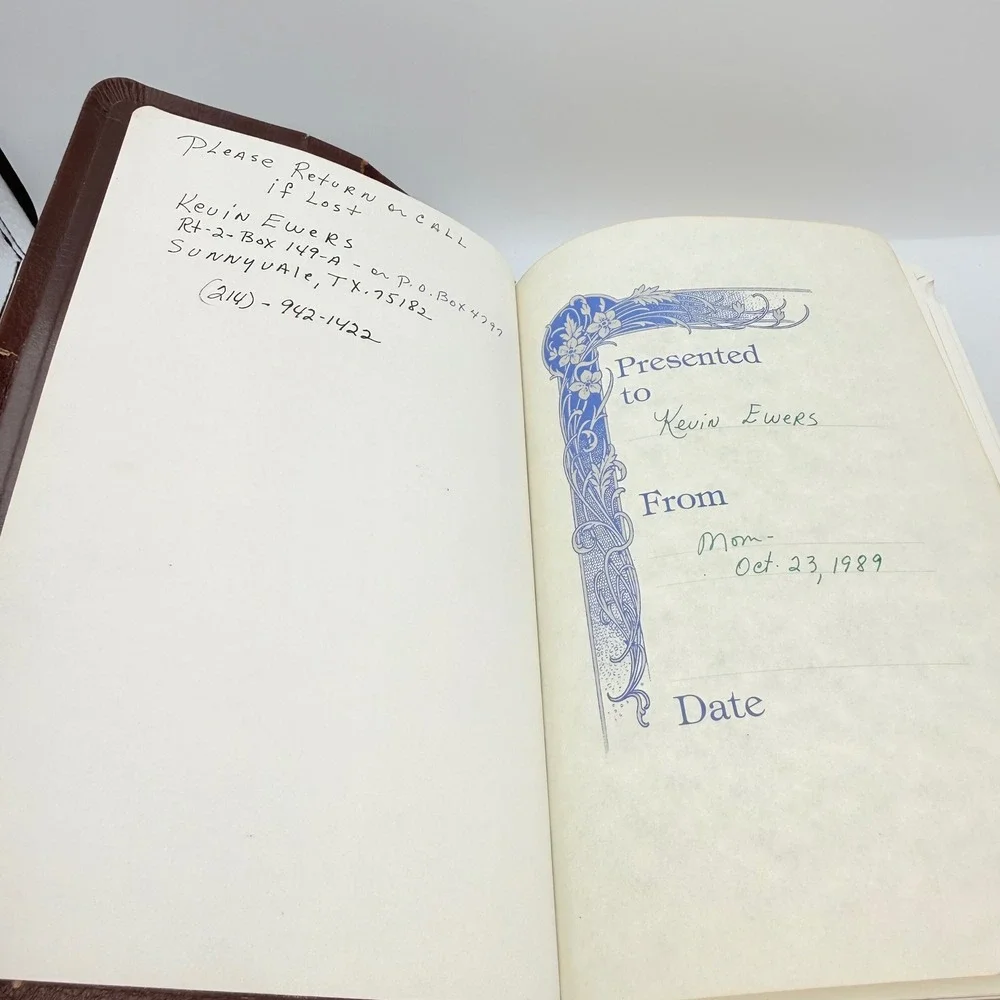 Please Return or CALL
if Lost
Kevin Ewers
Rt-2-Box 149-A - or P.O. Box 4797
Sunnyvale, TX. 75182
(214) - 942-1422
Presented
to
Kevin Ewers
From
Mom-
Oct. 23, 1989
Date